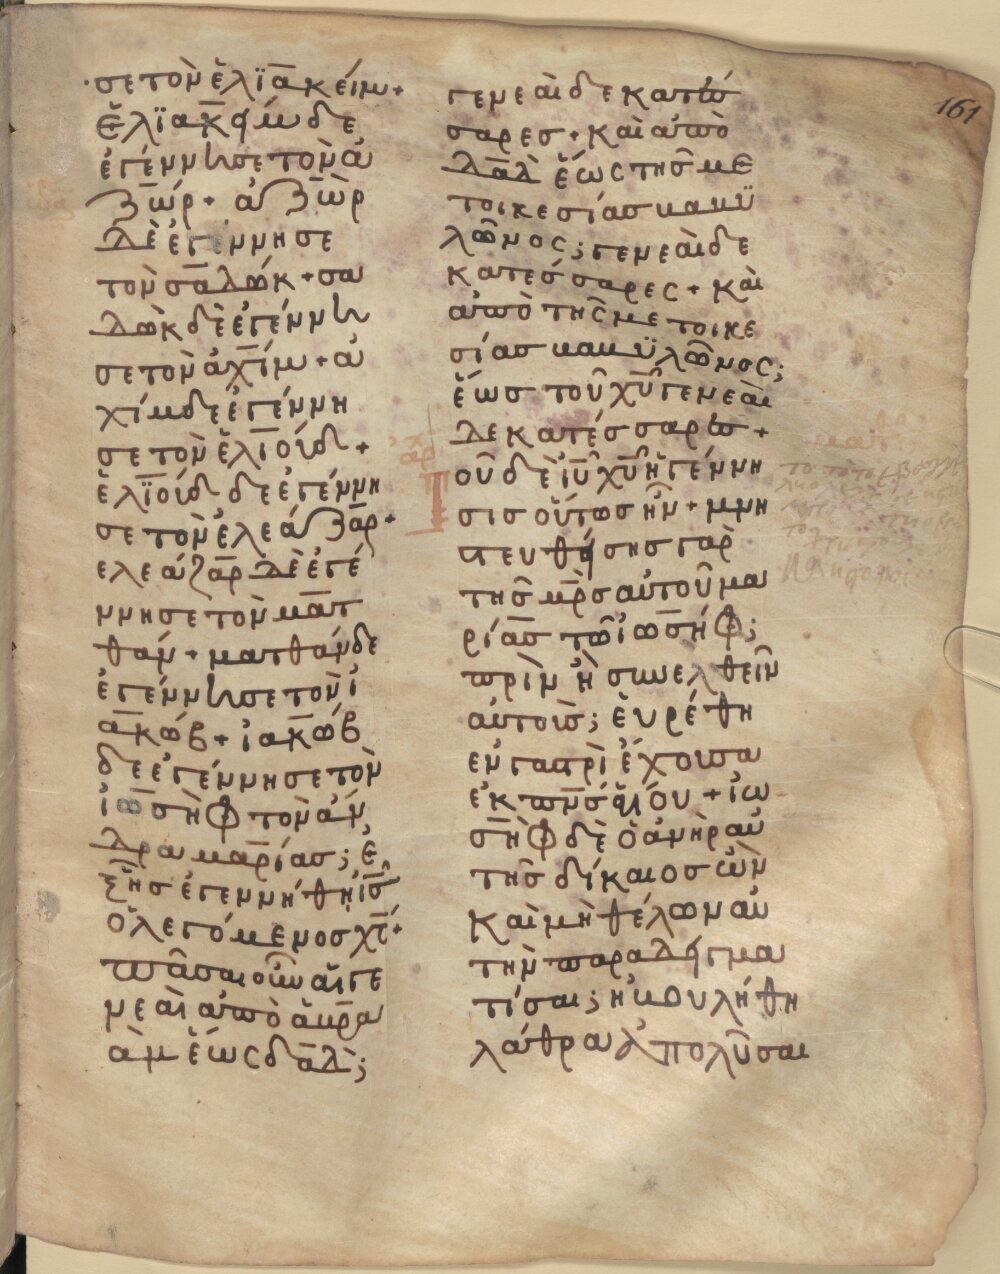 161
σε τὸν ἐλϊακείμ +
ἐλϊακήμ δε
ἐγέννησε τὸν ἀ
ζώρ + ἀζὼρ
δὲ ἐγέννησε
τὸν σαδώκ + σα
δὼκ δὲ ἐγέννη
σε τὸν ἀχίμ + ἀ
χίμ δε ἐγέννη
σε τὸν ἐλιούδ +
ἐλϊούδ δε ἐγέννη
σε τὸν ἐλεάζαρ +
ελεάζαρ δὲ ἐγέ
ννησε τὸν ματ
θάν + ματθάν δε
ἐγέννησε τὸν ἰ
ακώβ + ἰακώβ
δε ἐγέννησε τὸν
ἰωσὴφ τὸν ἀν
δρα μαρίας ; ἐ
ξ ἧς ἐγεννήθη ἰς
ὁ λεγόμενος χς +
πᾶσαι οὖν αἱ γε
νεαὶ ἀπὸ ἀβρα
ὰμ ἕως δαδ ;
γενεαὶ δεκατέσ
σαρες + καὶ ἀπὸ
δαδ ἕως τῆς με
τοικεσίας βαβυ
λῶνος ; γενεαὶ δε
κατέσσαρες + καὶ
ἀπὸ τῆς μετοικε
σίας βαβυλῶνος ;
ἕως τοῦ χυ γενεαὶ
δεκατέσσαρες +
οῦ δὲ ιυ χυ ἡ γέννη
σις οὕτως ἦν + μνη
στευθήσης γαρ
τῆς μρς αὐτοῦ μα
ρίας τῶ ἰωσήφ ;
πρὶν ἢ συνελθεῖν
αὐτούς ; εὑρέθη
ἐν γαστρὶ ἔχουσα
ἐκ πνς ἁγίου + ἰω
σὴφ δὲ ὁ ἀνὴρ αὐ
τῆς δίκαιος ὢν
καὶ μὴ θέλων αὐ
τὴν παραδηγμα
τίσαι ; ἠβουλήθη
λάθρα ἀπολῦσαι